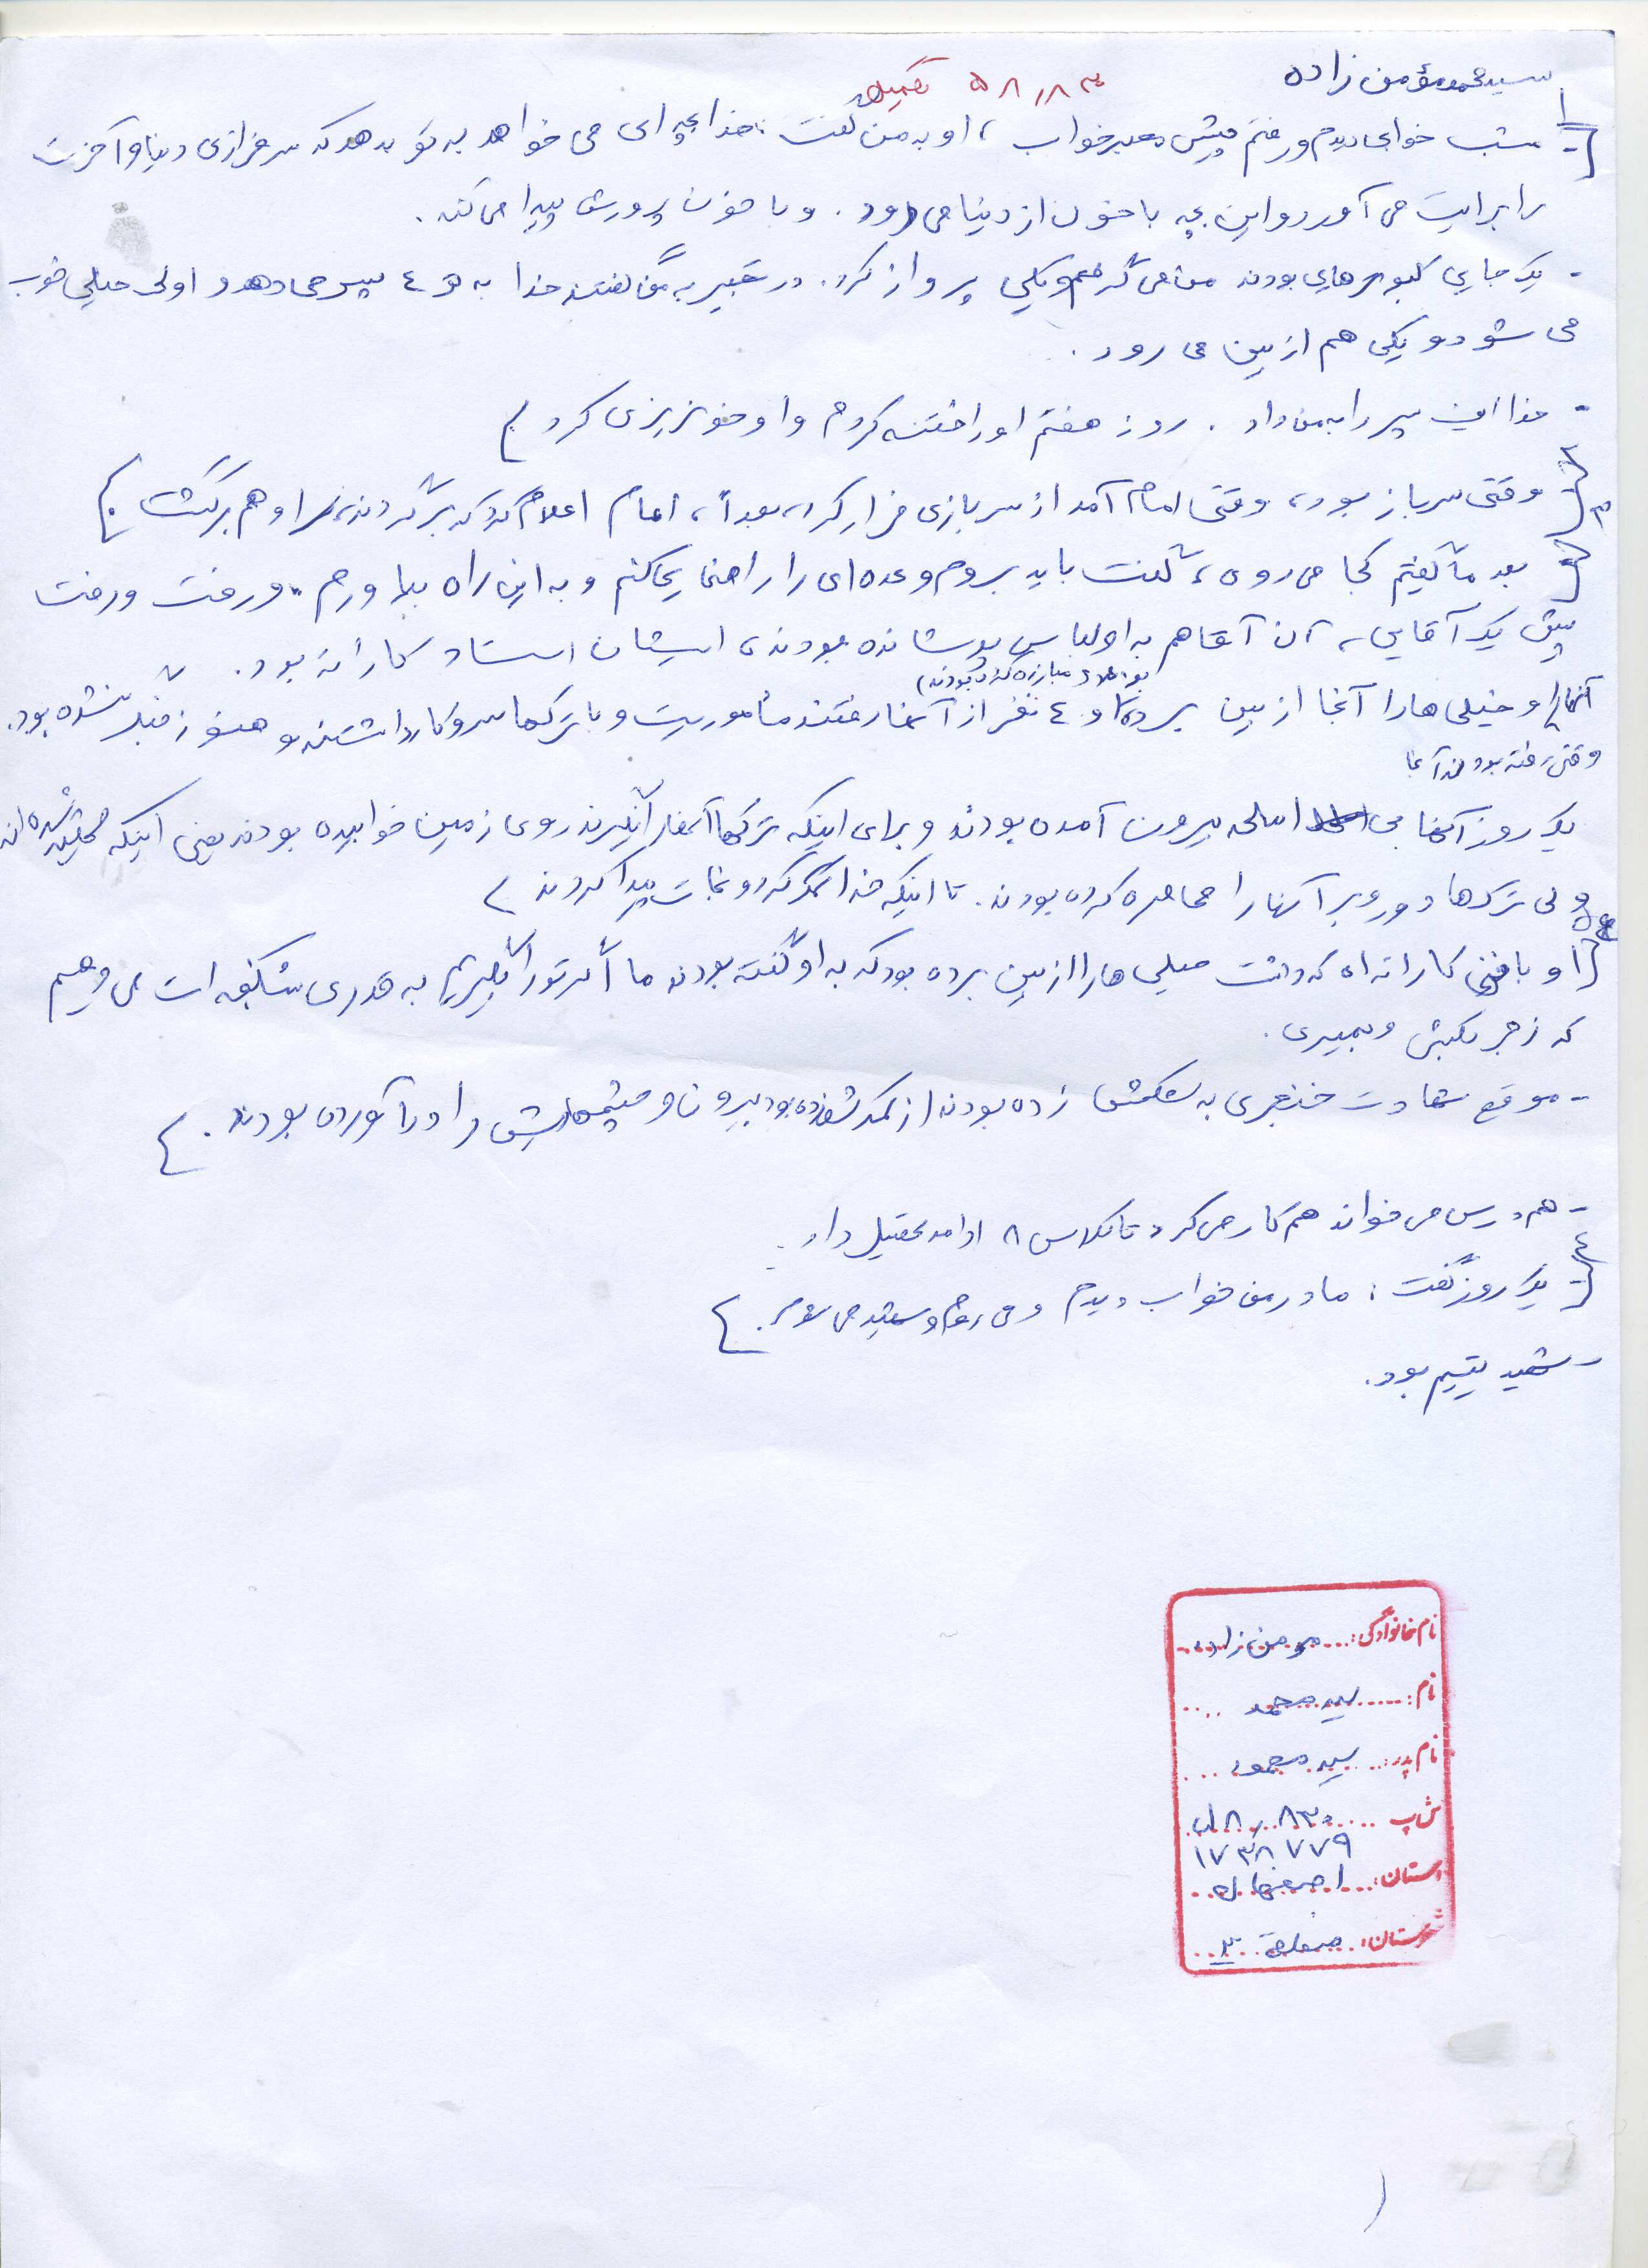 سید محمد مؤمن زاده
تکمیل
۱- شب خوابی دیدم و رفتم پیش معبر خواب، او به من گفت: خدا بچه ای می خواهد به تو بدهد که سرفرازی دنیا و آخرت
را برایت می آورد و این بچه با خون از دنیا می رود. و با خون پرورش پیدا می کند.
- یک جایی کبوترهایی بودند من می گرفتم و یکی پرواز کرد. در تعبیر به من گفتند خدا به تو ٤ پسر می دهد و اولی خیلی خوب
می شود و یکی هم از بین می رود.
- خدا این پسر را به من داد. روز هفتم او را ختنه کردم و او خونریزی کرد
۳ وقتی سرباز بود، وقتی امام آمد از سربازی فرار کرد، بعداً، امام اعلام کرد که برگردند، او هم برگشت.
- بعد ما گفتیم کجا می روی، گفت باید بروم و عده ای را راهنمایی کنم و به این راه بیاورم. و رفت و رفت
پیش یک آقایی، آن آقا هم به او لباس پوشانده بودند، ایشان استاد کاراته بود.
مبارزه کرده بودند)
آنها و خیلی ها را آنجا از بین برده و ٤ نفر از آنها رفتند مأموریت و با ترکها سروکار داشتند و هنوز جنگ نشده بود.
وقتی رفته بودند آنجا
یک روز آنها بی اسلحه بیرون آمده بودند و برای اینکه ترکها آنها را نگیرند روی زمین خوابیده بودند یعنی اینکه
ولی ترک‌ها دور و بر آنها را محاصره کرده بودند. تا اینکه خدا کمک کرد و نجات پیدا کردند
او با فن کاراته ای که داشت خیلی ها را از بین برده بود که به او گفته بودند ما اگر تو را بگیریم به قدری شکنجه ات می دهیم
که زجر بکشی و بمیری.
- موقع شهادت خنجری به شکمش زده بودند از کمرش زده بود بیرون و چشمهایش را درآورده بودند.
- هم درس می خواند هم کار می کرد تا کلاس ۸ ادامه تحصیل داد.
٤- یک روز گفت: مادر من خواب دیدم و می روم و شهید می شوم.
- شهید یتیم بود.
نام خانوادگی: مومن زاده
نام: سید محمد
نام پدر: سید محمود
ش پ
۱۷۳۸۷۷۹
استان: اصفهان
شهرستان: منطقه ۳